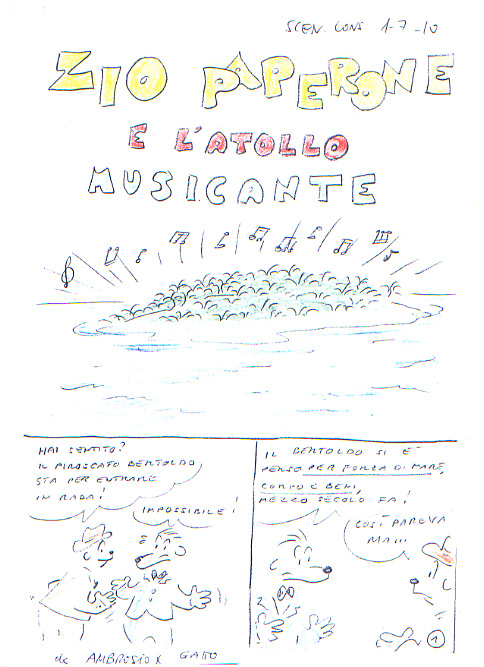 SCEN. CONS 1-7-10
ZIO PAPERONE
E L'ATOLLO
MUSICANTE
HAI SENTITO?
IL PIROSCAFO BERTOLDO
STA PER ENTRARE
IN RADA!
IMPOSSIBILE!
IL BERTOLDO SI È
PERSO PER FORZA DI MARE,
UOMO E BENI,
MEZZO SECOLO FA!
COSÌ PAREVA
MA...
1
de AMBROSIO X GATTO